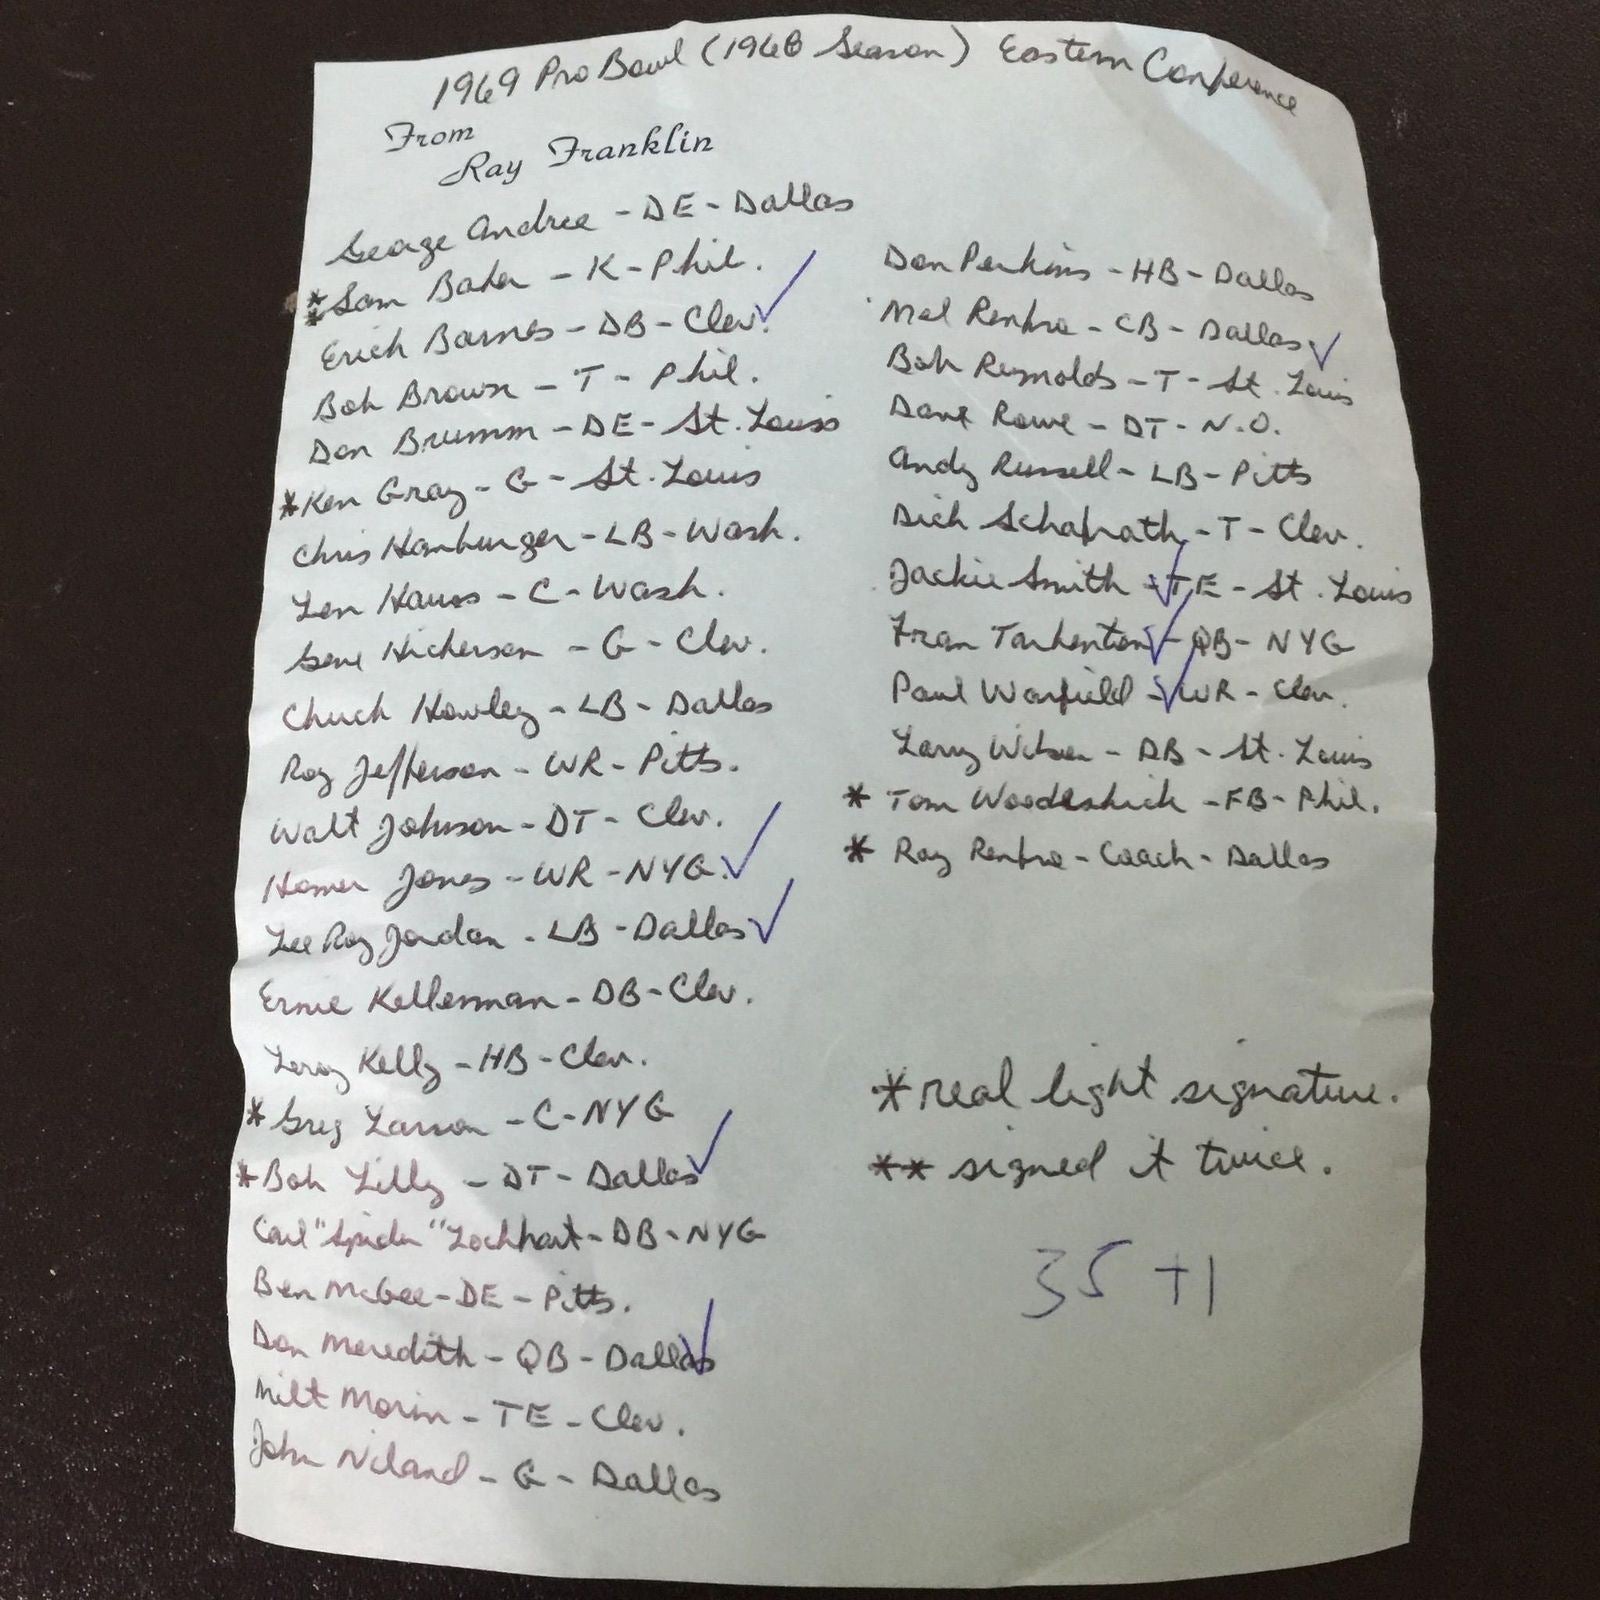 1969 Pro Bowl (1968 Season) Eastern Conference
From
Ray Franklin
George Andrie - DE - Dallas
** Sam Baker - K - Phil.
Erich Barnes - DB - Clev. ✓
Bob Brown - T - Phil.
Don Brumm - DE - St. Louis
* Ken Gray - G - St. Louis
Chris Hamburger - LB - Wash.
Len Hauss - C - Wash.
Gene Hickerson - G - Clev.
Chuck Howley - LB - Dallas
Roy Jefferson - WR - Pitts.
Walt Johnson - DT - Clev.
Homer Jones - WR - NYG. ✓
Lee Roy Jordan - LB - Dallas ✓
Ernie Kellerman - DB - Clev.
Leroy Kelly - HB - Clev.
* Greg Larson - C - NYG
* Bob Lilly - DT - Dallas ✓
Carl "Spider" Lockhart - DB - NYG
Ben McGee - DE - Pitts.
Don Meredith - QB - Dallas ✓
Milt Morin - TE - Clev.
John Niland - G - Dallas
Don Perkins - HB - Dallas
Mel Renfro - CB - Dallas ✓
Bob Reynolds - T - St. Louis
Dave Rowe - DT - N.O.
Andy Russell - LB - Pitts
Dick Schafrath - T - Clev.
Jackie Smith - ✓ TE - St. Louis
Fran Tarkenton ✓ - QB - NYG
Paul Warfield - ✓ WR - Clev.
Larry Wilson - DB - St. Louis
* Tom Woodeshick - FB - Phil.
* Ray Renfro - Coach - Dallas
* real light signature.
** signed it twice.
35 + 1